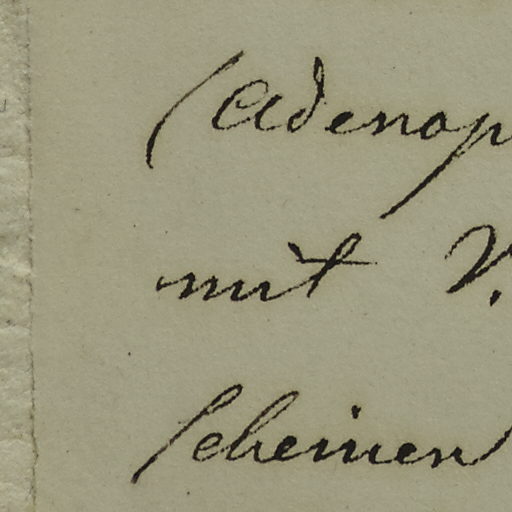 (Adenop
mit V.
scheinen